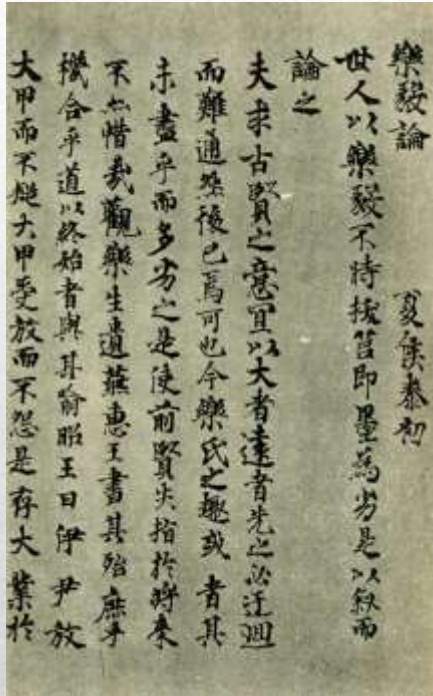 樂毅論 夏侯泰初
世人以樂毅不時拔莒即墨為劣是以叙而
論之
夫求古賢之意宜以大者遠者先之必迂迴
而難通然後已焉可也今樂氏之趣或者其
未盡乎而多劣之是使前賢失指於将来
不亦惜哉觀樂生遺燕惠王書其殆庶乎
機合乎道以終始者與其喻昭王曰伊尹放
大甲而不疑大甲受放而不怨是存大業於